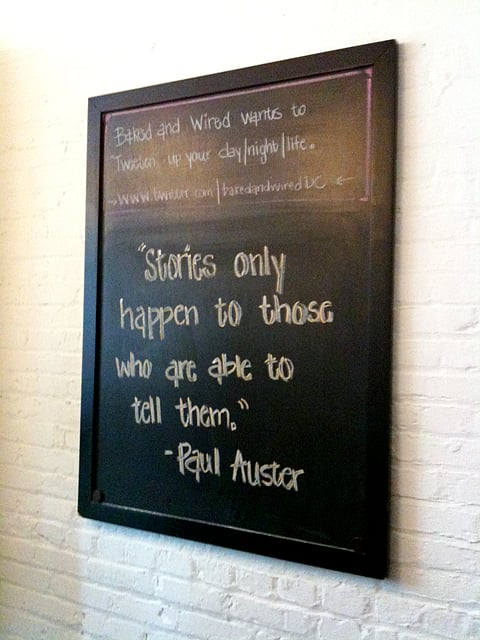 Baked and Wired wants to
"Tweeten up your day/night/life.
→ www.twitter.com/bakedandwiredDC ←
"Stories only
happen to those
who are able to
tell them."
- Paul Auster